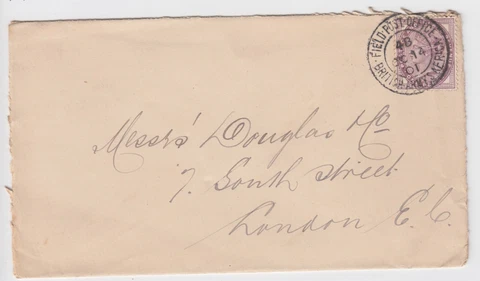 FIELD POST OFFICE
46
DE 14
01
BRITISH ARMY S. AFRICA
Messrs Douglas & Co
7. South Street
London E.C.